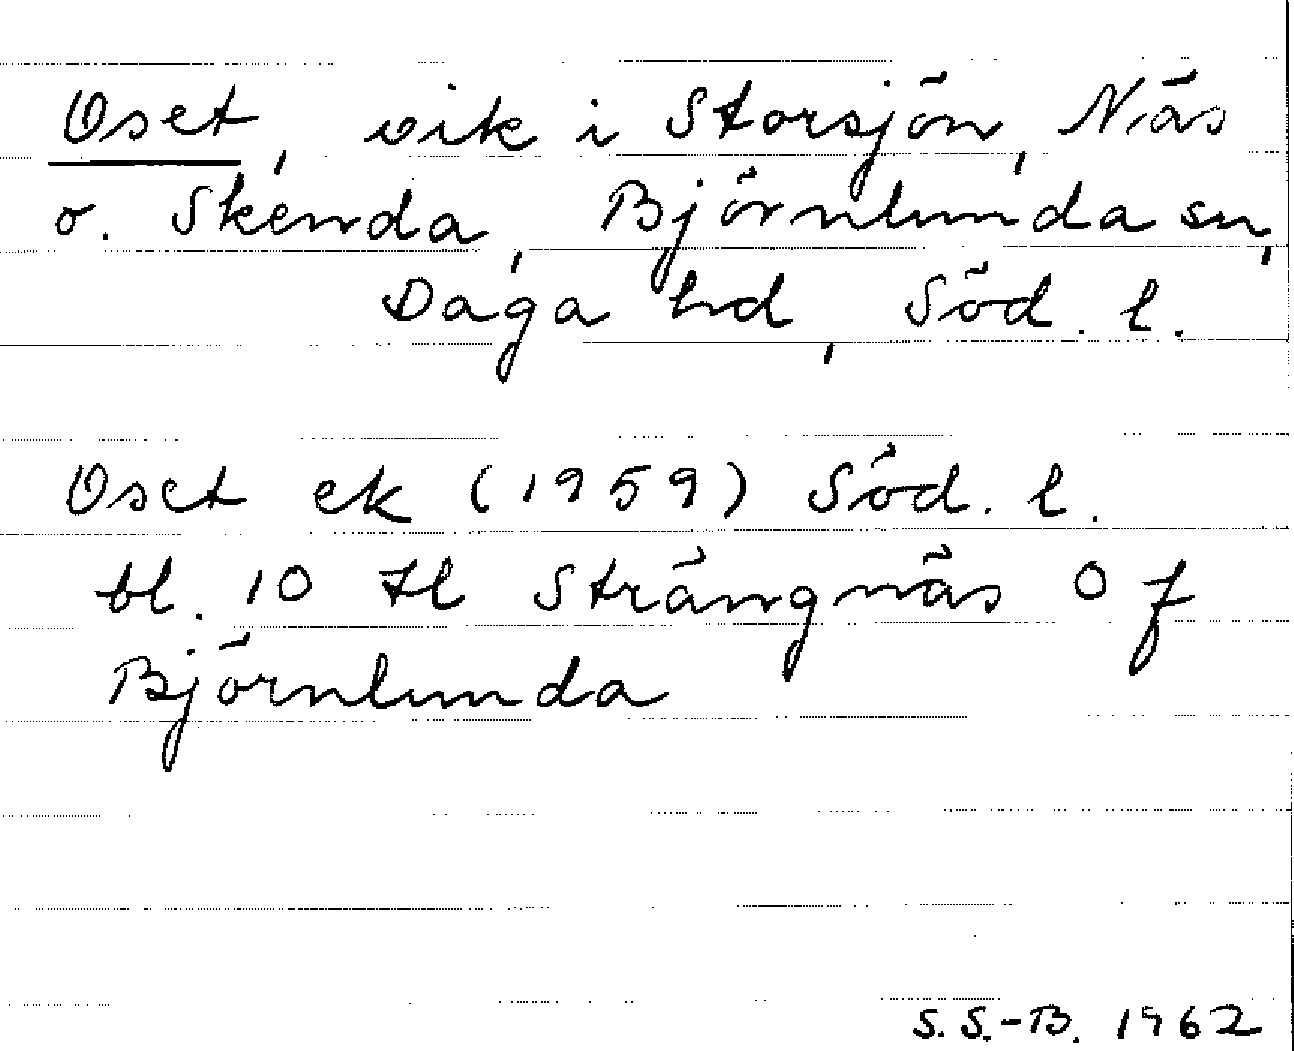 Oset, vik i Storsjön, Näs
o. Skenda, Björnlunda sn,
Daga hd, Söd. l.
Oset ek (1959) Söd. l.
bl. 10 tl Strängnäs O f
Björnlunda
S. S.-B. 1962